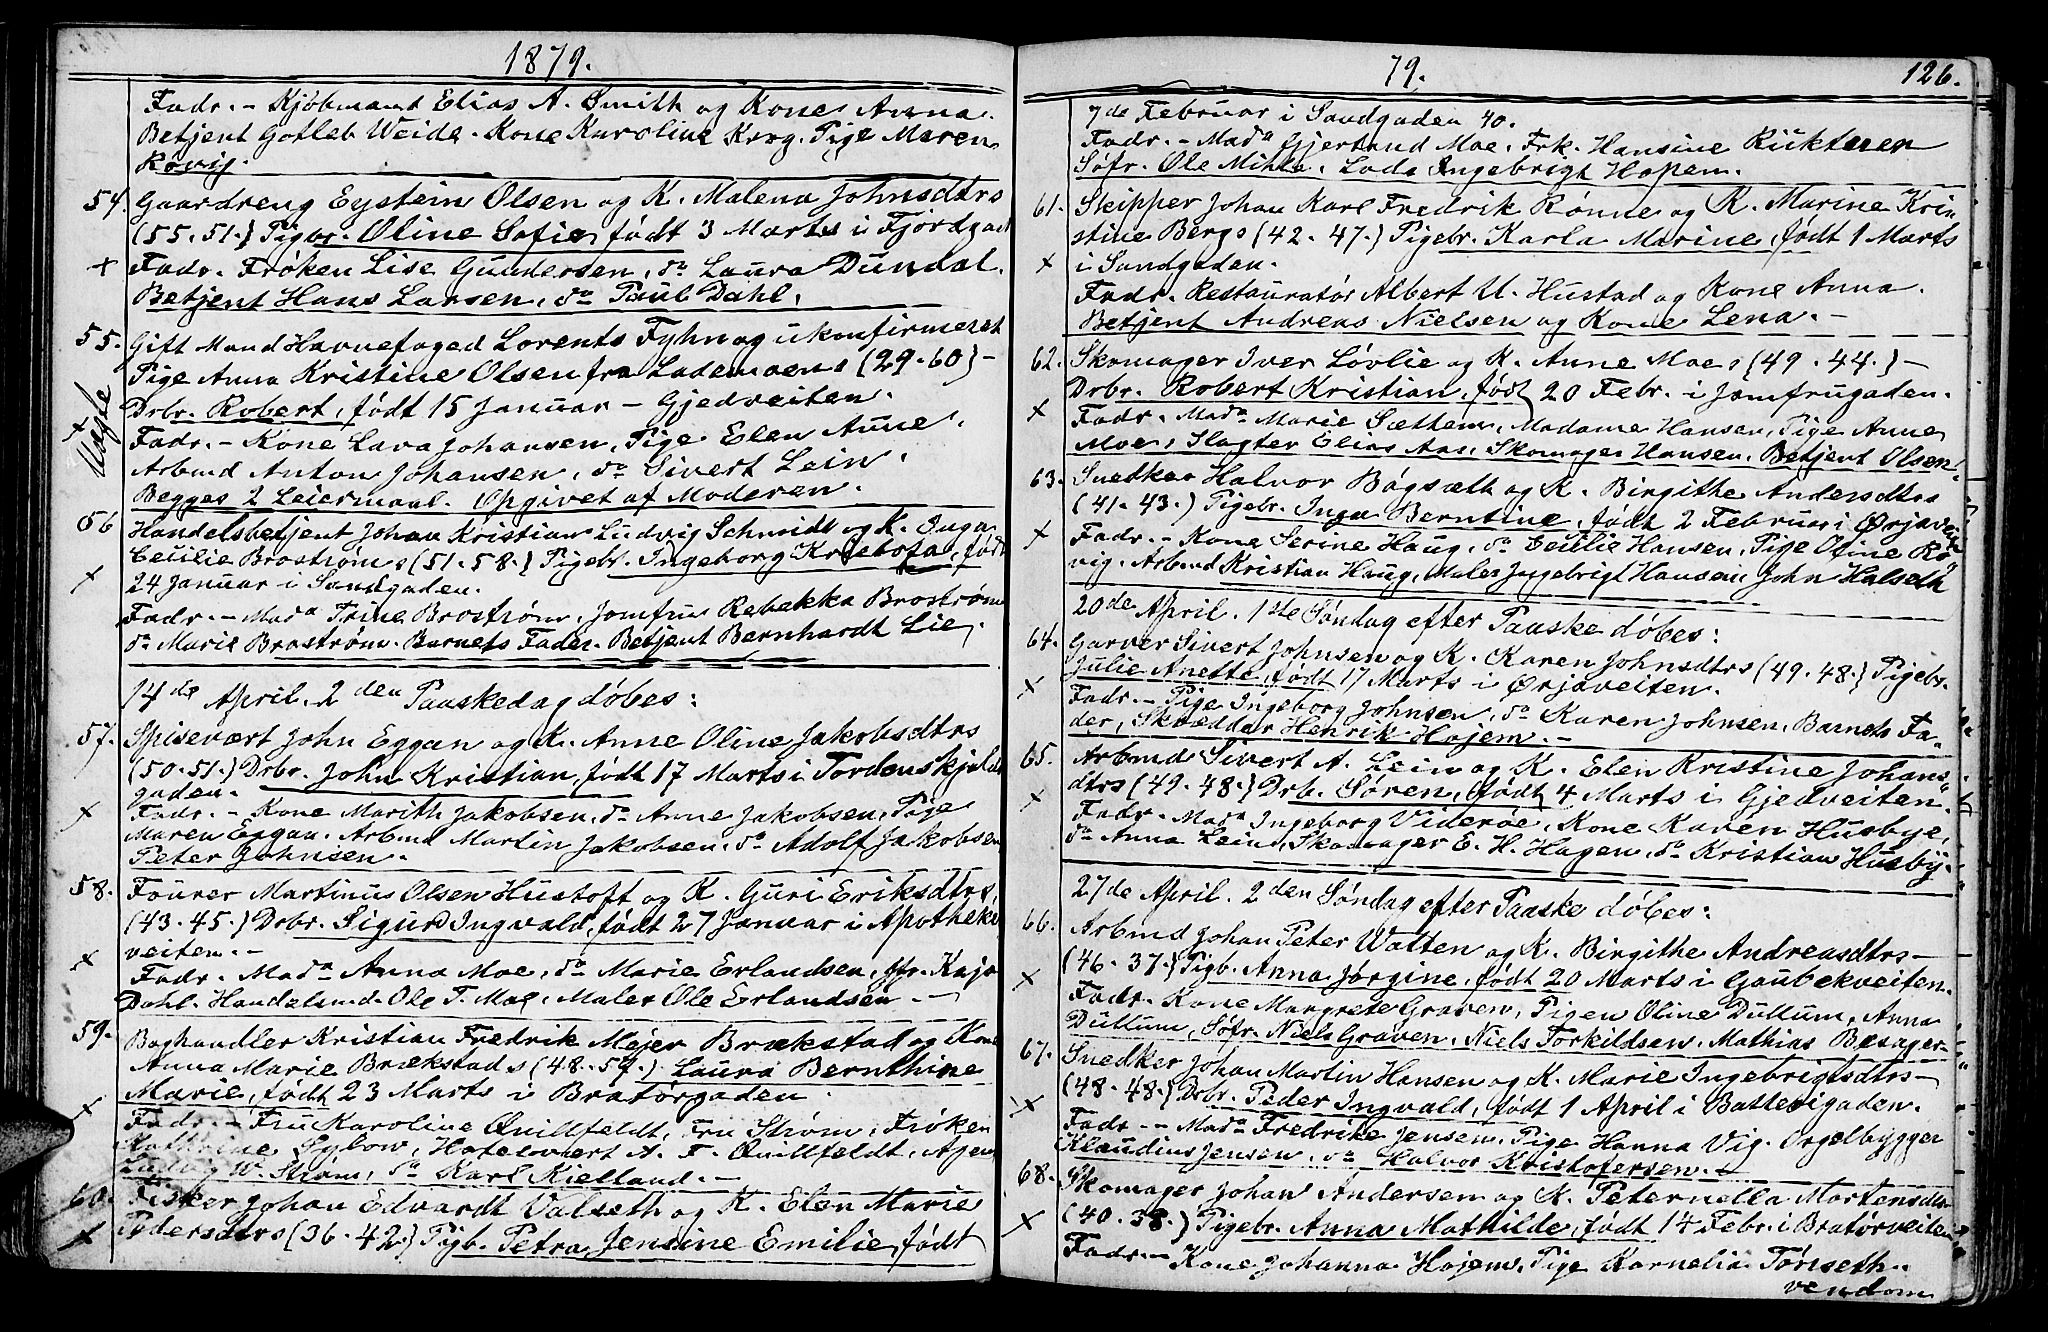 1879.
Fadr. - Kjöbmand Elias A. Smith og Kone Anna.
Betjent Gotleb Weide. Kone Karoline Krog. Pige Maren
Røvig.
54. Gaardreng Eystein Olsen og K. Malena Johnsdtrs
(55. 51.) Pigbr. Oline Sofie, født 3 Marts i Fjordgad
x Fadr. Frøken Lise Gundersen, do Laura Dundal.
Betjent Hans Larsen, do Paul Dahl.
55. Gift Mand Havnefoged Lorents Fyhn og ukonfirmeret
Pige Anna Kristine Olsen fra Lademoens (29. 60) -
Drbr. Robert, født 15 Januar - Gjedveiten.
x Uægte Fadr. - Kone Lava Johansen, Pige Elen Aune.
Arbmd Anton Johansen, do Sivert Lein.
Begges 2 Leiermaal. Opgivet af Moderen.
56 Handelsbetjent Johan Kristian Ludvig Schmidt og K. Inga
Cecilie Brostrøms (51. 58.) Pigebr. Ingeborg Kristofa, født
x 24 Januar i Sandgaden.
Fadr. - Mada Trine Brostrøm, Jomfru Rebekka Brostrøm
do Marie Brostrøm. Barnets Fader. Betjent Bernhardt Lie.
14de April. 2den Paaskedag døbes:
57. Spisevært John Eggan og K. Anne Oline Jakobsdtrs
(50. 51.) Drbr. John Kristian, født 17 Marts i Tordenskjolds
gaden.
x Fadr. - Kone Marith Jakobsen, do Anne Jakobsen, Pige
Maren Eggan. Arbmd Martin Jakobsen, do Adolf Jakobsen
Peter Johnsen.
58. Fourer Martinus Olsen Hustoft og K. Guri Eriksdtrs
(43. 45.) Drbr. Sigurd Ingvald, født 27 Januar i Apotheker
x veiten. -
Fadr. Mada Anna Moe, do Marie Erlandsen, Jfr. Kaja
Dahl. Handelsmd. Ole T. Moe, Maler Ole Erlandsen. -
59. Boghandler Kristian Fredrik Mejer Brækstad og Kone
Anna Marie Brækstads (48. 59.) Laura Bernthine
Marie, født 23 Marts i Bratørgaden.
x Fadr. - Fru Karoline Quillfeldt, Fru Strøm, Frøken
Kathrine Sylow, Hotelvert A. F. Quillfeldt, Agent
Ludvig W. Strøm, do Karl Kielland. -
60. Fisker Johan Edvardt Valseth og K. Elen Marie
x Pedersdtrs (36. 42) Pigb. Petra Jensine Emilie, født
79. 126.
7de Februar i Sandgaden 40.
Fadr. - Mada Gjertrud Moe. Frk. Hansine Rükteren
Søfr. Ole Mihle. Lods Ingebrigt Hopem.
61. Skipper Johan Karl Fredrik Rønne og K. Marine Kri-
stine Bergs (42. 47.) Pigebr. Karla Marine, født 1 Marts
x i Sandgaden.
Fadr. Restauratør Albert U. Hustad og Kone Anna.
Betjent Andreas Nielsen og Kone Lena. -
62. Skomager Iver Løvlie og K. Anne Moes (49. 44.) -
Drbr. Robert Kristian, født 20 Febr. i Jomfrugaden.
x Fadr. Mada Marie Sættem, Madame Hansen, Pige Anne
Moe, Slagter Elias Aas, Skomager Hansen, Betjent Olsen.
63. Snedker Halvor Bøgsæth og K. Birgithe Andersdtrs
(41. 43.) Pigebr. Inga Berntine, født 2 Februar i Ørjaveiten
x Fadr. - Kone Serine Haug, do Cecilie Hansen, Pige Oline Rø-
vig. Arbmd Kristian Haug, Maler Ingebrigt Hansen, John Halseth
20de April. 1ste Søndag efter Paaske døbes:
64. Garver Sivert Johnsen og K. Karen Johnsdtrs (49. 48.) Pigebr.
Julie Anette, født 17 Marts i Ørjaveiten.
x Fadr. - Pige Ingeborg Johnsen, do Karen Johnsen, Barnets Fa-
der, Skrædder Henrik Hojem. -
65. Arbmd Sivert A. Lein og K. Elen Kristine Johans-
dtrs (49. 48.) Drb. Søren, født 4 Marts i Gjedveiten.
x Fadr. Mada Ingeborg Viderøe, Kone Karen Husbye,
do Anna Lein, Skomager E. H. Hagen, do Kristian Husby.
27de April. 2den Søndag efter Paaske døbes:
66. Arbmd Johan Peter Watten og K. Birgithe Andreasdtrs -
(46. 37.) Pigb. Anna Jørgine, født 20 Marts i Gaubekveiten.
x Fadr. Kone Margrete Graven, Pigen Oline Dullum, Anna
Dullum, Søfr. Niels Graven, Niels Torkildsen, Mathias Besager-
67. Snedker Johan Martin Hansen og K. Marie Ingebrigtsdtrs -
(48. 48.) Drbr. Peder Ingvald, født 1 April i Batterigaden.
x Fadr. - Mada Fredrike Jensen, Pige Hanna Vig. Orgelbygger
Klaudius Jensen, do Halvor Kristofersen. -
68. Skomager Johan Andersen og K. Peternella Mortensdtrs
(40. 38.) Pigebr. Anna Mathilde, født 14 Febr. i Bratørveiten
x Fadr. - Kone Johanna Hojem, Pige Kornelia Tønseth.
vendom